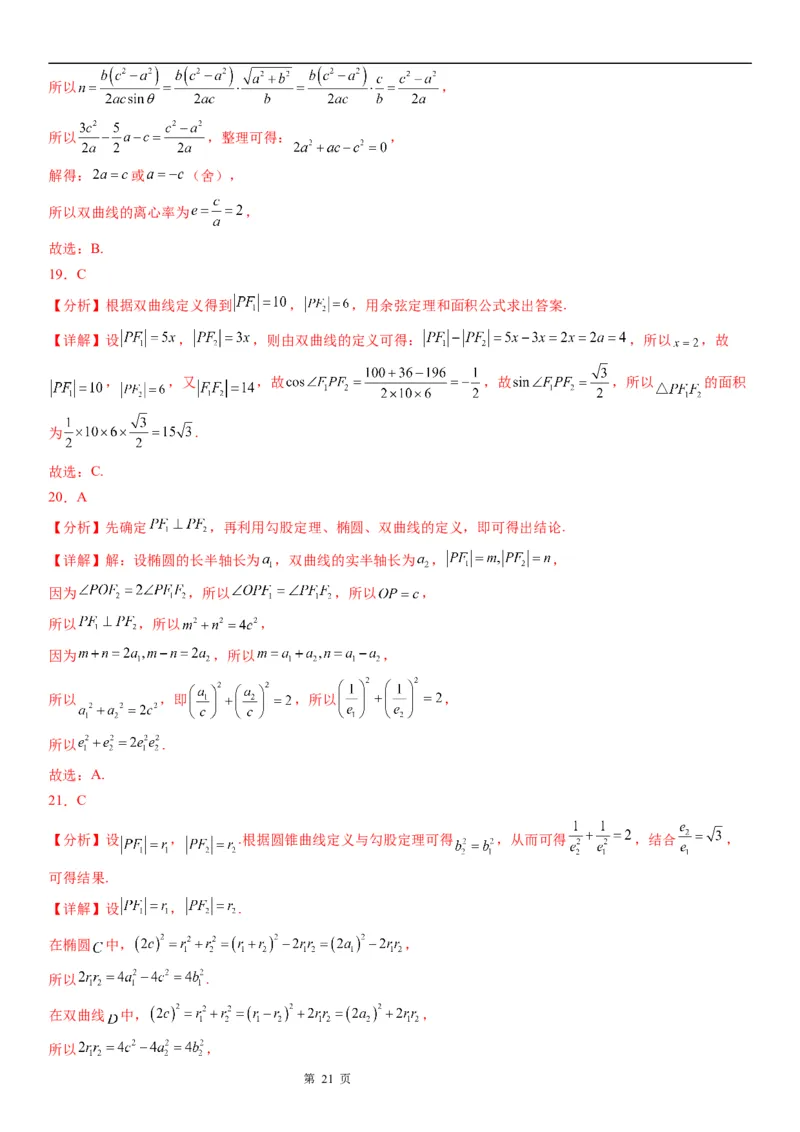 所以 n = b(c²−a²)/(2ac sin θ) = b(c²−a²)/(2ac) · √(a²+b²)/b = b(c²−a²)/(2ac) · c/b = (c²−a²)/(2a) ,
所以 3c²/(2a) − 5/2 a − c = (c²−a²)/(2a) ，整理可得： 2a² + ac − c² = 0 ，
解得：2a = c 或 a = −c（舍），
所以双曲线的离心率为 e = c/a = 2 ,
故选：B.
19．C
【分析】根据双曲线定义得到 |PF₁| = 10 ，|PF₂| = 6 ，用余弦定理和面积公式求出答案.
【详解】设 |PF₁| = 5x ，|PF₂| = 3x ，则由双曲线的定义可得：|PF₁| − |PF₂| = 5x − 3x = 2x = 2a = 4 ，所以 x = 2 ，故
|PF₁| = 10 ，|PF₂| = 6 ，又 |F₁F₂| = 14 ，故 cos∠F₁PF₂ = (100+36−196)/(2×10×6) = −1/2 ，故 sin∠F₁PF₂ = √3/2 ，所以 △PF₁F₂ 的面积
为 1/2 ×10×6× √3/2 = 15√3 .
故选：C.
20．A
【分析】先确定 PF₁ ⊥ PF₂ ，再利用勾股定理、椭圆、双曲线的定义，即可得出结论.
【详解】解：设椭圆的长半轴长为 a₁ ，双曲线的实半轴长为 a₂ ，|PF₁| = m, |PF₂| = n ，
因为 ∠POF₂ = 2∠PF₁F₂ ，所以 ∠OPF₁ = ∠PF₁F₂ ，所以 OP = c ，
所以 PF₁ ⊥ PF₂ ，所以 m² + n² = 4c² ，
因为 m + n = 2a₁, m − n = 2a₂ ，所以 m = a₁ + a₂, n = a₁ − a₂ ，
所以 a₁² + a₂² = 2c² ，即 (a₁/c)² + (a₂/c)² = 2 ，所以 (1/e₁)² + (1/e₂)² = 2 ，
所以 e₁² + e₂² = 2e₁²e₂² .
故选：A.
21．C
【分析】设 |PF₁| = r₁ ，|PF₂| = r₂ .根据圆锥曲线定义与勾股定理可得 b₂² = b₁² ，从而可得 1/e₂² + 1/e₁² = 2 ，结合 e₂/e₁ = √3 ，
可得结果.
【详解】设 |PF₁| = r₁ ，|PF₂| = r₂ .
在椭圆 C 中，(2c)² = r₁² + r₂² = (r₁ + r₂)² − 2r₁r₂ = (2a₁)² − 2r₁r₂ ，
所以 2r₁r₂ = 4a₁² − 4c² = 4b₁² .
在双曲线 D 中，(2c)² = r₁² + r₂² = (r₁ − r₂)² + 2r₁r₂ = (2a₂)² + 2r₁r₂ ，
所以 2r₁r₂ = 4c² − 4a₂² = 4b₂² ，
第 21 页